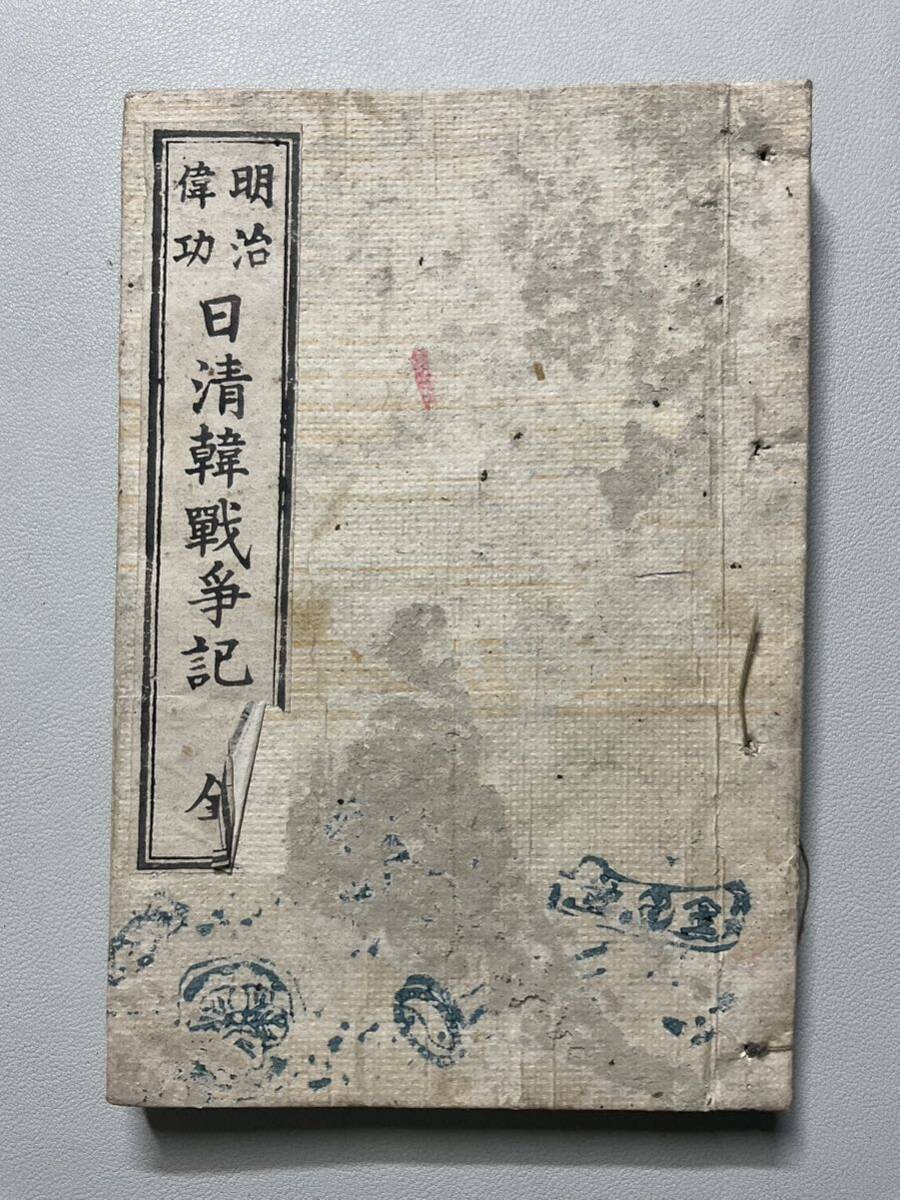 明治
偉功
日清韓戰爭記
全